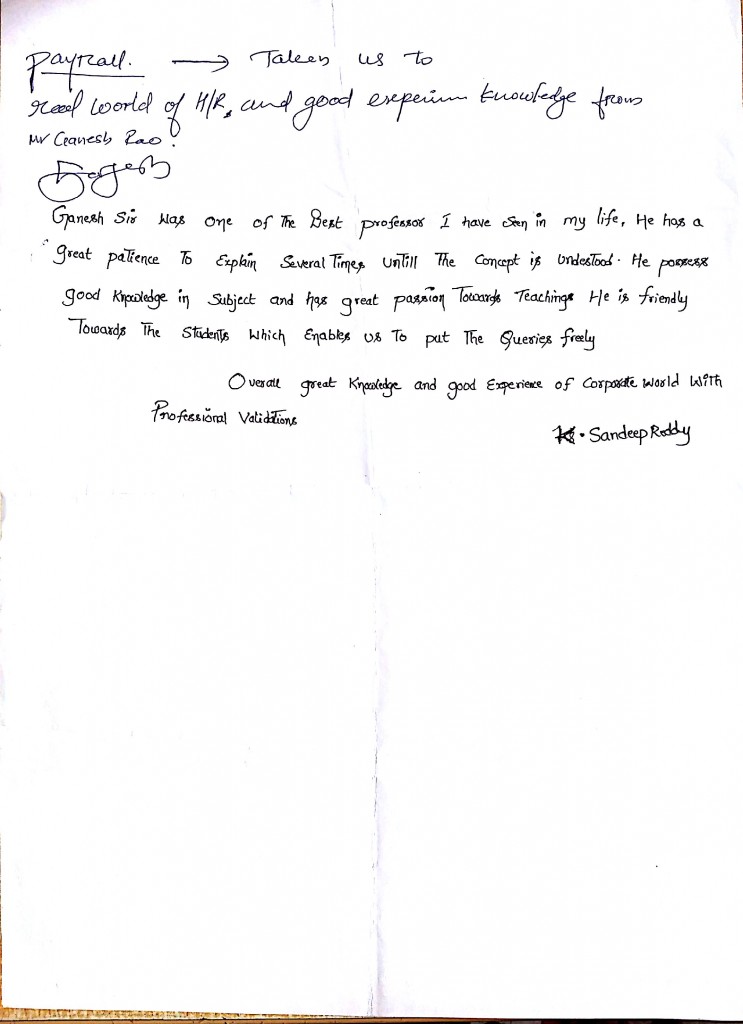 Payroll. → Takes us to
real world of H/R, and good experium knowledge from
Mr Ganesh Rao.
Ganesh Sir Was one of The Best professor I have seen in my life, He has a
great patience To Explain Several Times Untill The Concept is Undestood. He possess
good Knowledge in Subject and has great passion Towards Teachings He is friendly
Towards The Students Which Enables us To put The Queries freely
Overall great Knowledge and good Experience of Corporate World With
Professional Validations
K. Sandeep Reddy